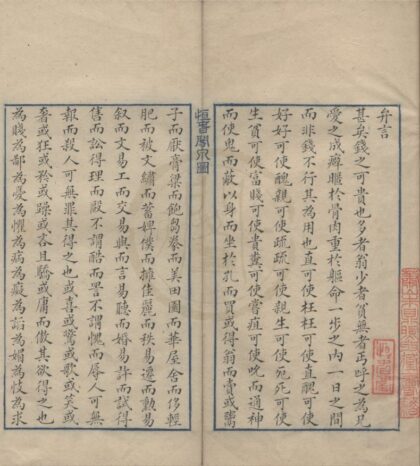 弁言
甚矣錢之可貴也多者翁少者貧無者丐呼之為兄
愛之成癖於骨肉重於軀命一步之內一日之間
而非錢不行其為用也直可使枉枉可使直醜可使
好好可使醜親可使疏疏可使親生可使死死可使
生貧可使富賤可使貴糞可使嘗疽可使吮而通神
而使鬼而蔽以身而坐於孔而買或得翁而賣或鬻
子而厭膏粱而飽芻豢而美田園而華屋舍而侈輕
肥而被文繡而蓄婢僕而擁佳麗而秩易遷而勳易
叙而文易工而交易與而言易聽而婚易許而試得
售而訟得理而毆不謂酷而詈不謂愧而辱人可無
報而殺人可無罪其得之也或喜或驚或歌或笑或
奢或狂或矜或躁或吝且驕或庸而傲其欲得之也
為賤為鄙為憂為懼為病為癡為諂為媚為忮為求